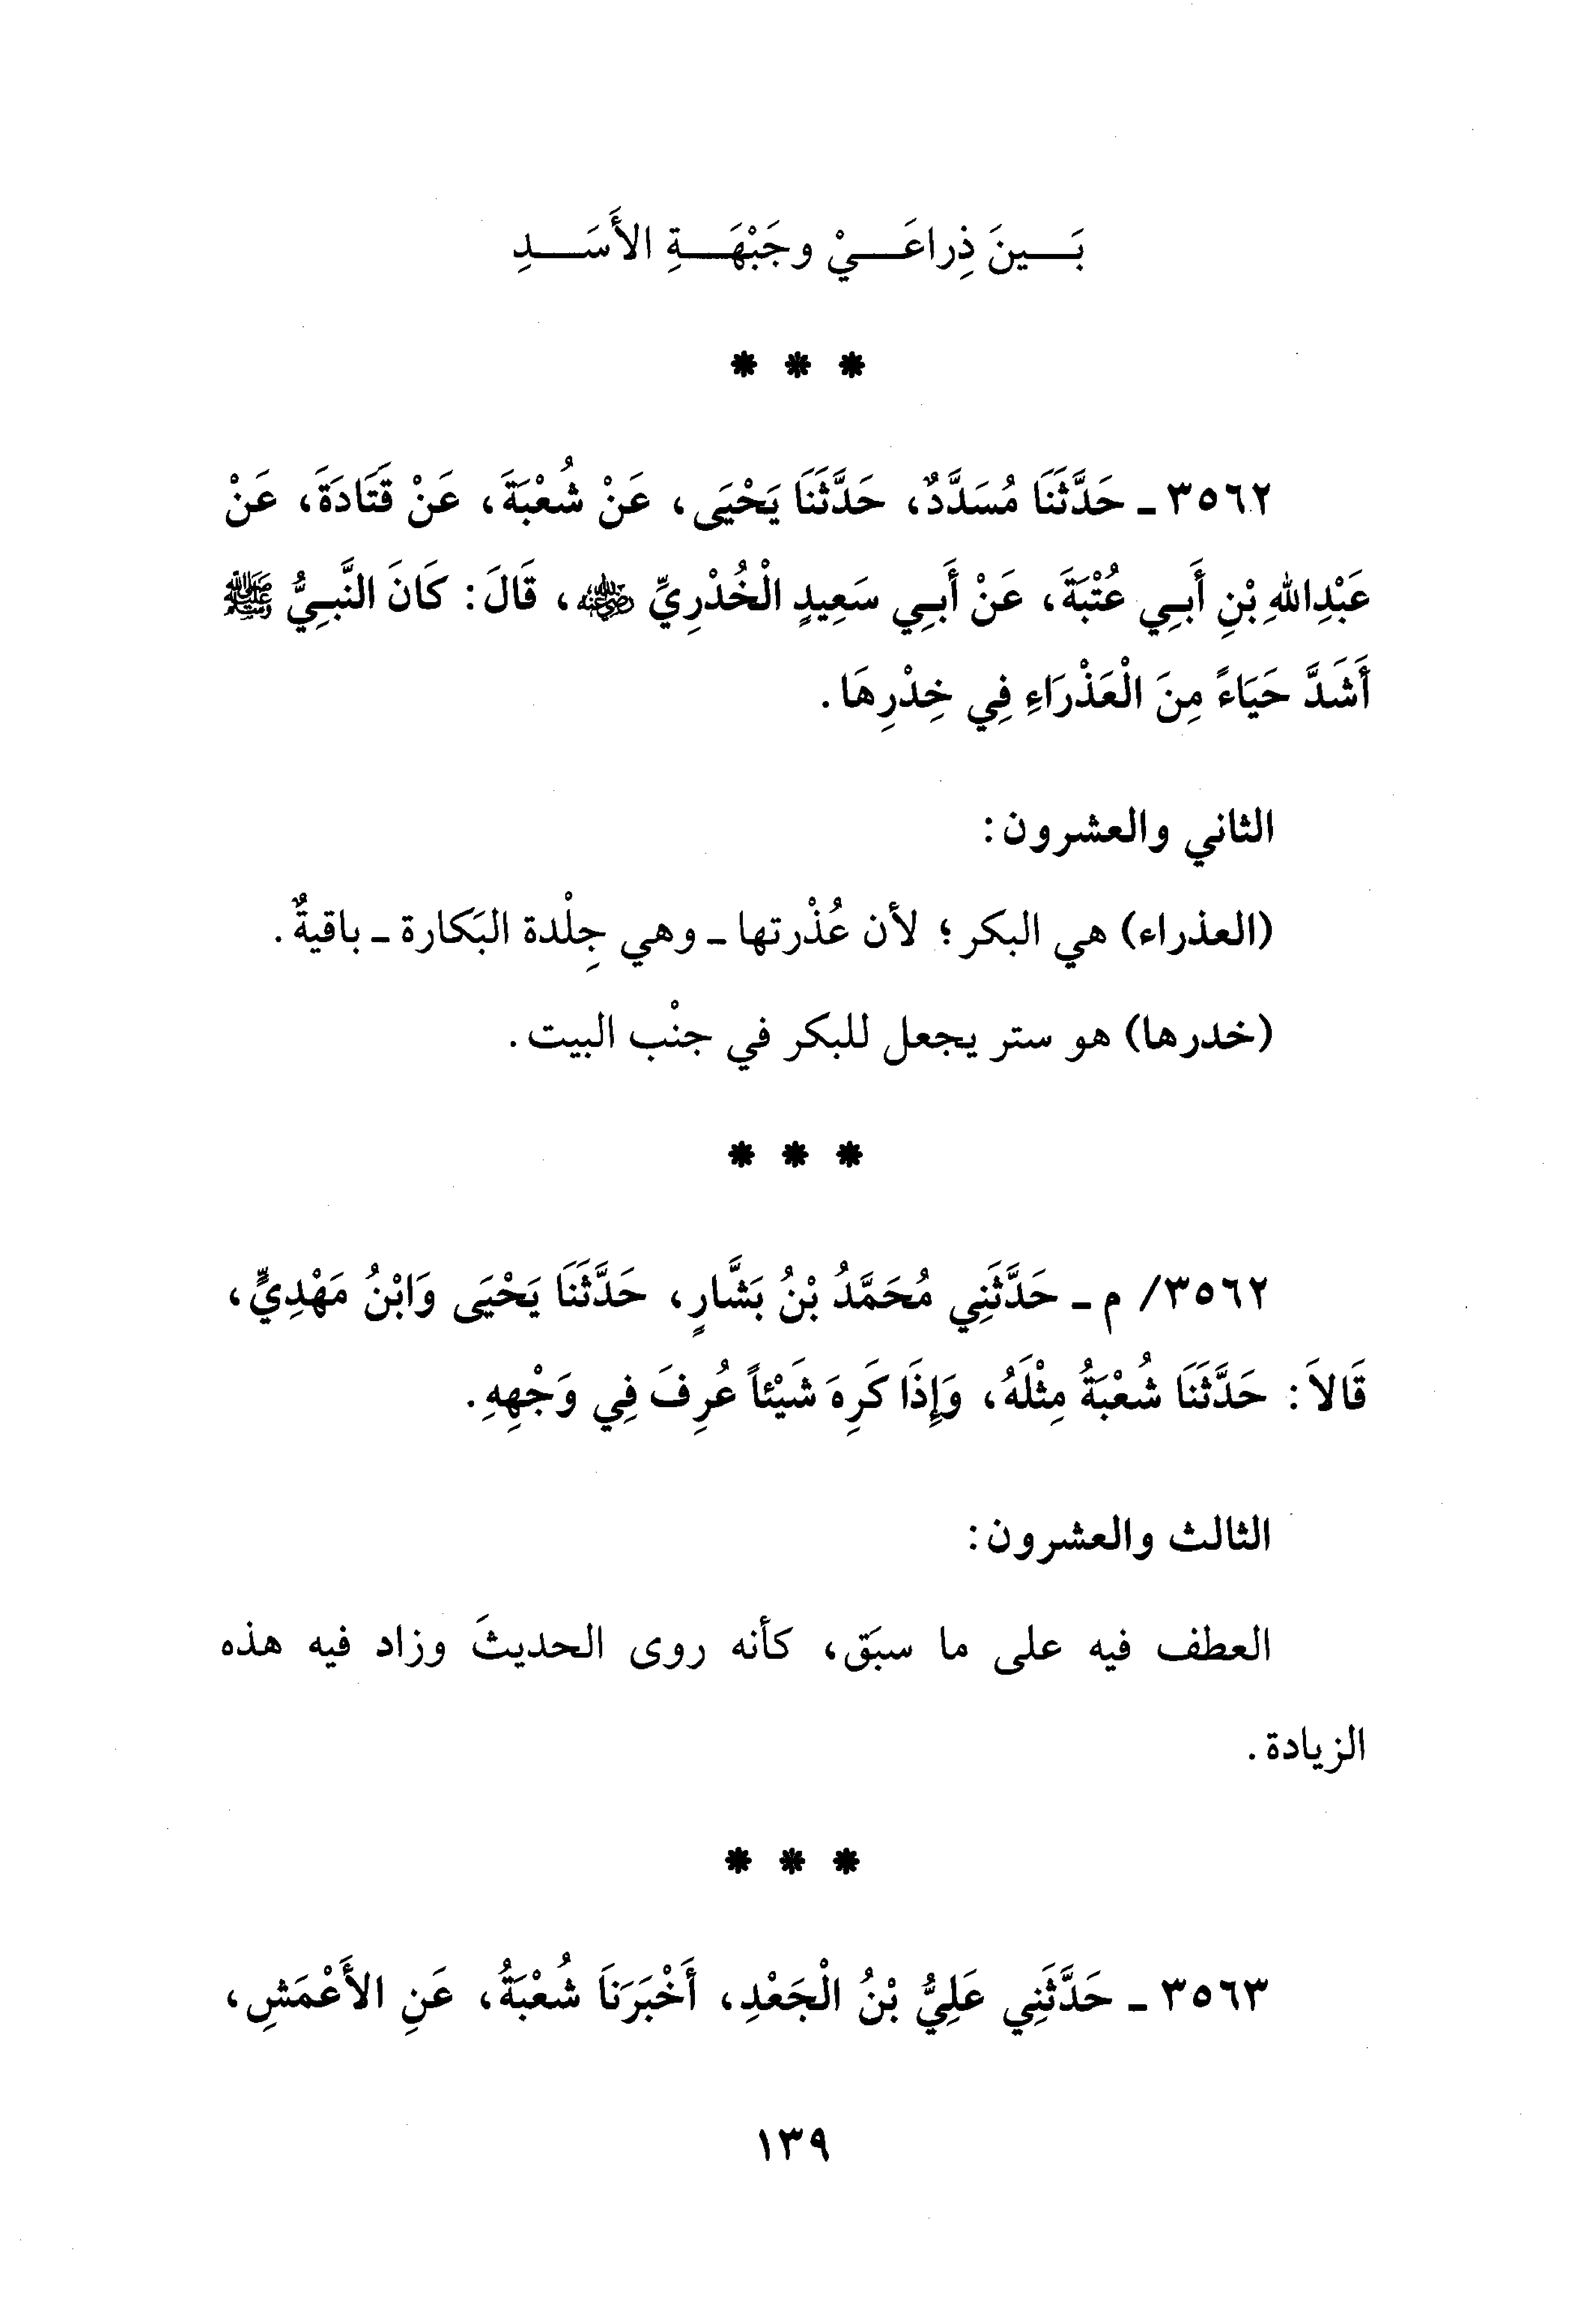 بَـــينَ ذِراعَـــيْ وجَبْهَـــةِ الأَســـدِ
* * *
٣٥٦٢ ـ حَدَّثَنَا مُسَدَّدٌ، حَدَّثَنَا يَحْيَى، عَنْ شُعْبَةَ، عَنْ قَتَادَةَ، عَنْ
عَبْدِاللهِ بْنِ أَبِي عُتْبَةَ، عَنْ أَبِي سَعِيدٍ الْخُدْرِيِّ رضي الله عنه، قَالَ: كَانَ النَّبِيُّ ﷺ
أَشَدَّ حَيَاءً مِنَ الْعَذْرَاءِ فِي خِدْرِهَا.
الثاني والعشرون:
(العذراء) هي البكر؛ لأن عُذْرتها ـ وهي جِلْدة البَكارة ـ باقيةٌ.
(خدرها) هو ستر يجعل للبكر في جنْب البيت.
* * *
٣٥٦٢/ م ـ حَدَّثَنِي مُحَمَّدُ بْنُ بَشَّارٍ، حَدَّثَنَا يَحْيَى وَابْنُ مَهْدِيٍّ،
قَالاَ: حَدَّثَنَا شُعْبَةُ مِثْلَهُ، وَإِذَا كَرِهَ شَيْئاً عُرِفَ فِي وَجْهِهِ.
الثالث والعشرون:
العطف فيه على ما سبَق، كأنه روى الحديثَ وزاد فيه هذه
الزيادة.
* * *
٣٥٦٣ ـ حَدَّثَنِي عَلِيُّ بْنُ الْجَعْدِ، أَخْبَرَنَا شُعْبَةُ، عَنِ الأَعْمَشِ،
١٣٩